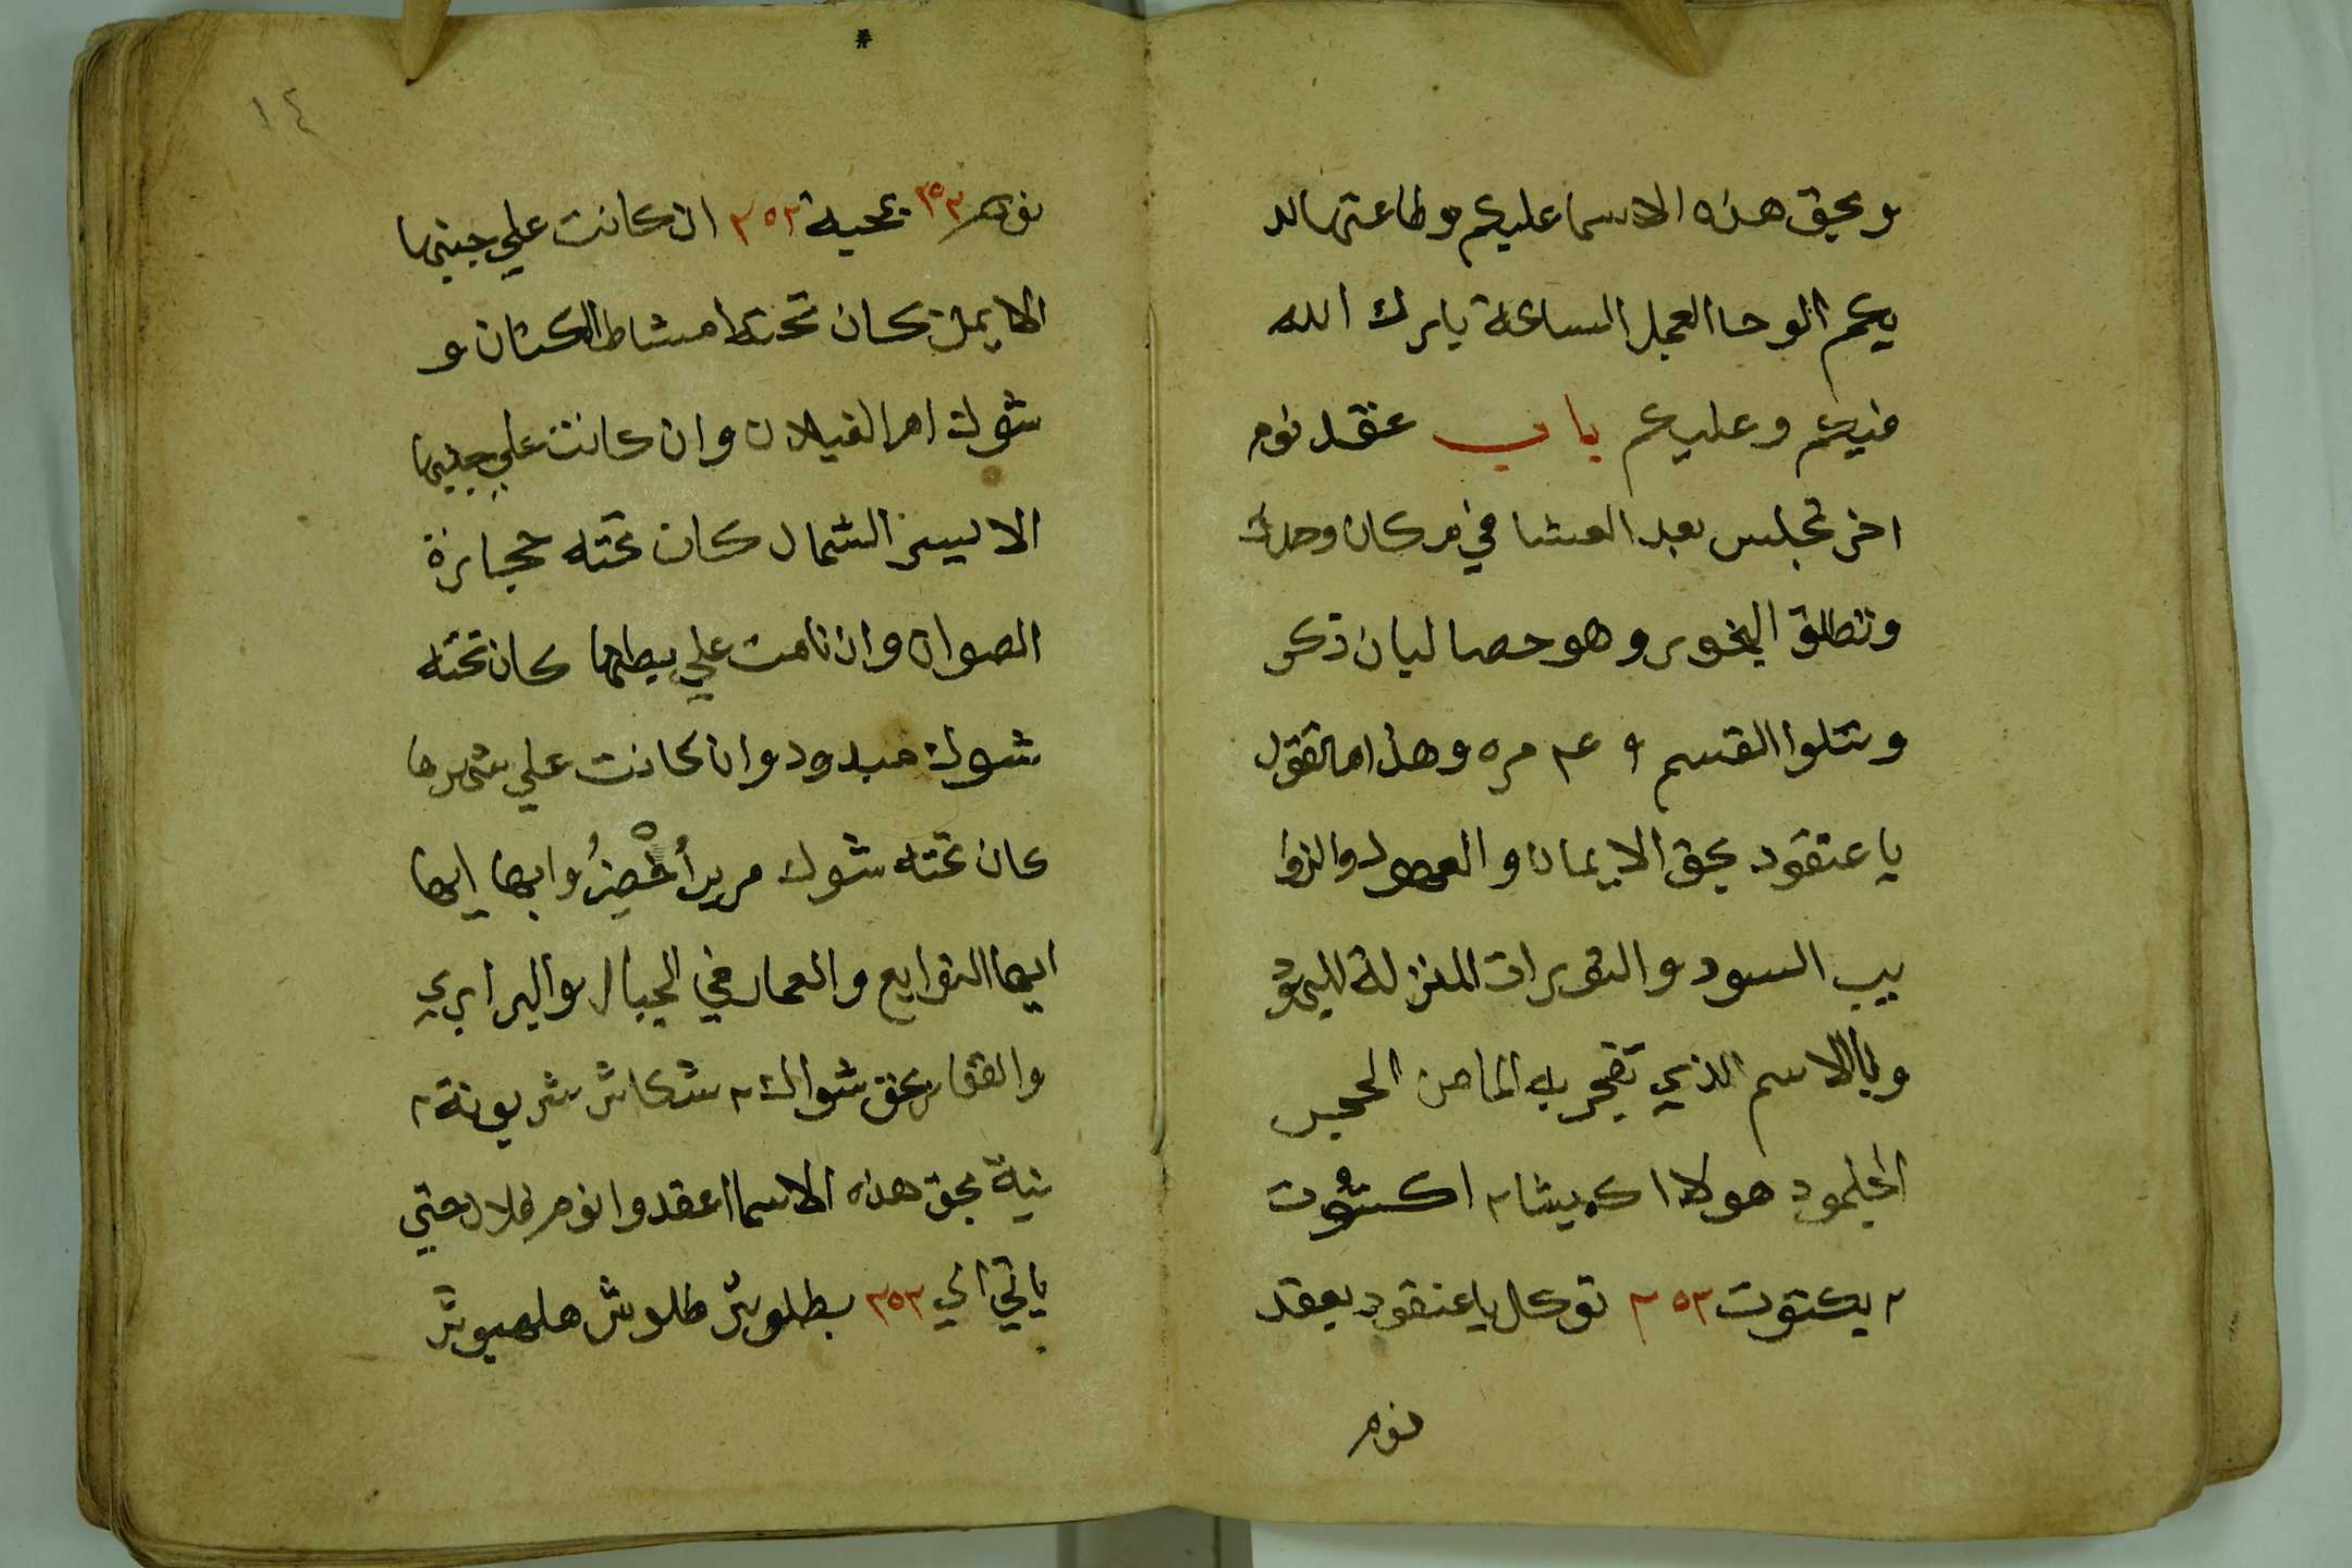 وبحق هذه الاسما عليكم وطاعتها لد
يكم الوحا العجل الساعة بارك الله
فيكم وعليكم باب عقد نوم
اخر تجلس بعد العشا في مركان وحدك
وتطلق البخور وهو حصا لبان ذكر
وتتلوا القسم مره وهذا ما تقول
يا عنقود بحق الايمان و العهود والذوا
يب السود والتورات المنزلة لليهود
وبالاسم الذي تفجر به الما من الحجر
الجلمود هولا اكبيشا ٢ اكشوت
٢ يكتوت ٢٥٢ توكل يا عنقود بعقد
نوم
١٤
نوم ٢٥٢ بمحبة ٢٥٢ ان كانت علي جنبها
الايمن كان تحته امشاط الكتان و
شوك ام الغيلان وان كانت علي جنبها
الايسر الشمال كان تحته حجارة
الصوان وان نامت علي بطنها كان تحته
شوك مبدود وان كانت علي ضهرها
كان تحته شوك وايها ايها
ايها التوابع والعمار في الجبال والبراري
والقفار بحق شواك ٢ شكاش شربونة ٢
نية بحق هذه الاسما اعقدوا نوم فلان حتي
ياتي الي ٢٥٢ بطلوش طلوش هلهبوش